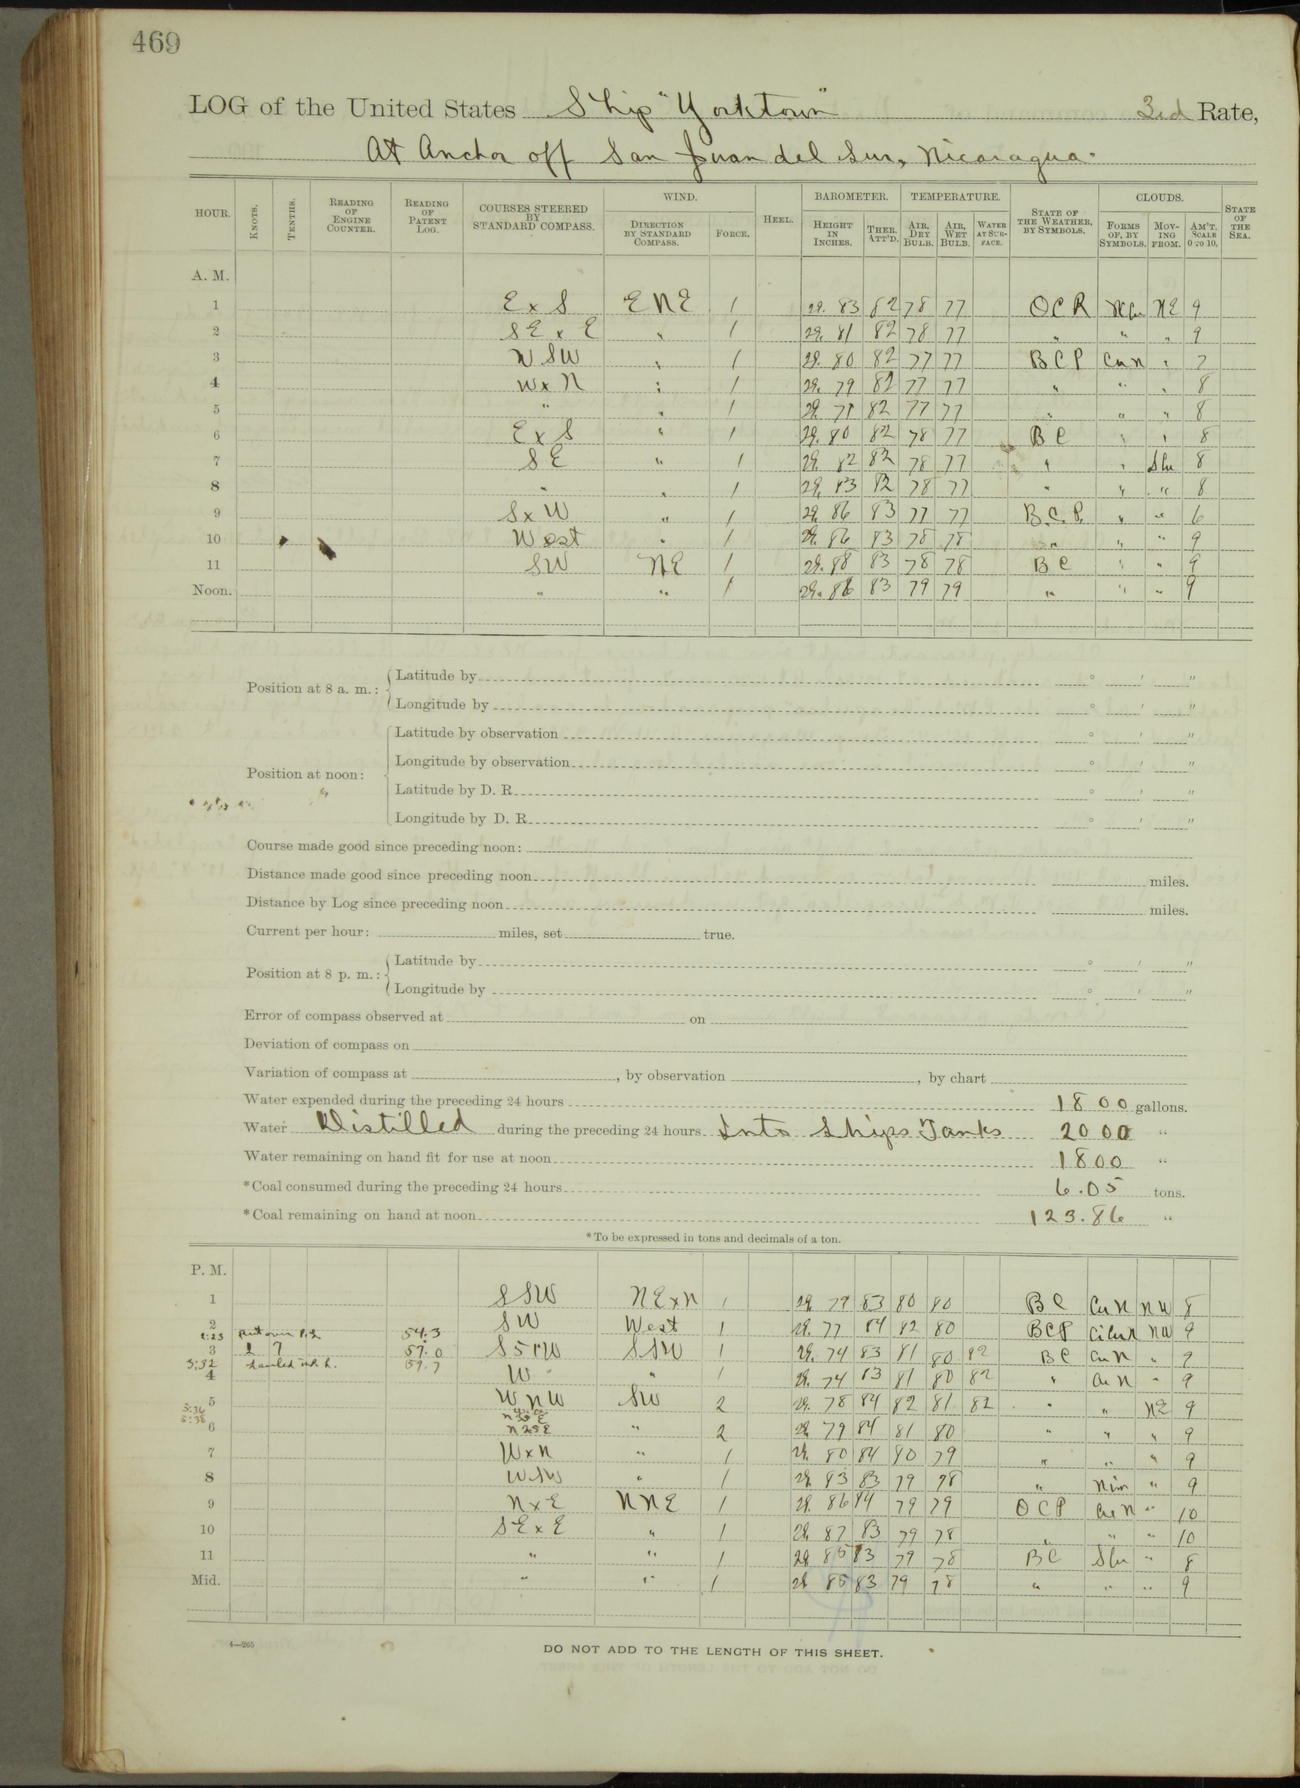 469
LOG of the United States Ship "Yorktown" 3rd Rate,
At Anchor off San Juan del Sur, Nicaragua.
HOUR. KNOTS. TENTHS. READING OF ENGINE COUNTER. READING OF PATENT LOG. COURSES STEERED BY STANDARD COMPASS. WIND. DIRECTION BY STANDARD COMPASS. FORCE. HEEL. BAROMETER. HEIGHT IN INCHES. THER. ATT'D. TEMPERATURE. AIR, DRY BULB. AIR, WET BULB. WATER AT SUR-FACE. STATE OF THE WEATHER, BY SYMBOLS. CLOUDS. FORMS OF, BY SYMBOLS. MOV-ING FROM. AM'T. SCALE 0 TO 10. STATE OF THE SEA.
A. M.
1 E x S ENE 1 29. 83 82 78 77 OCR NE 9
2 SE x E " 1 29. 81 82 78 77 " " " 9
3 WSW " 1 29. 80 82 77 77 BCP Cu N " 7
4 W x N " 1 29. 79 82 77 77 " " " 8
5 " " 1 29. 82 77 77 " " " 8
6 E x S " 1 29. 80 82 78 77 BC " " 8
7 SE " 1 29. 82 82 78 77 " " 8
8 " " 1 29. 83 82 78 77 " " " 8
9 S x W " 1 29. 86 83 77 77 B.C.P. " " 6
10 West " 1 29. 86 83 78 78 " " " 9
11 SW NE 1 29. 88 83 78 78 BC " " 9
Noon. " " 1 29. 86 83 79 79 " " " 9
Position at 8 a. m.: Latitude by ° ' "
Longitude by ° ' "
Position at noon: Latitude by observation ° ' "
Longitude by observation ° ' "
Latitude by D. R. ° ' "
Longitude by D. R. ° ' "
Course made good since preceding noon:
Distance made good since preceding noon miles.
Distance by Log since preceding noon miles.
Current per hour: miles, set true.
Position at 8 p. m.: Latitude by ° ' "
Longitude by ° ' "
Error of compass observed at on
Deviation of compass on
Variation of compass at , by observation , by chart
Water expended during the preceding 24 hours 1800 gallons.
Water Distilled during the preceding 24 hours Into Ships Tanks 2000 "
Water remaining on hand fit for use at noon 1800 "
*Coal consumed during the preceding 24 hours 6.05 tons.
*Coal remaining on hand at noon 123.86 "
*To be expressed in tons and decimals of a ton.
P. M.
1 SSW NE x N 1 29. 79 83 80 80 BC Cu N NW 8
2 SW West 1 29. 77 84 82 80 BCP NW 9
Put over P.L. 54.3
3 1 7 57.0 SSW 1 29. 74 83 81 80 82 BC Cu N " 9
3:32 hauled in P. L. 59.7
4 W " 1 29. 74 83 81 80 82 " Cu N " 9
5 WNW SW 2 29. 78 84 82 81 82 " " NE 9
6 N 25 E " 2 29. 79 84 81 80 " " " 9
7 W x N " 1 29. 80 84 80 79 " " " 9
8 WSW " 1 29. 83 83 79 78 " Nim " 9
9 N x E NNE 1 29. 86 84 79 79 OCP Cu N " 10
10 SE x E " 1 29. 87 83 79 78 " " " 10
11 " " 1 29. 85 83 79 78 BC " 8
Mid. " " 1 29. 85 83 79 78 " " " 9
4—265
DO NOT ADD TO THE LENGTH OF THIS SHEET.